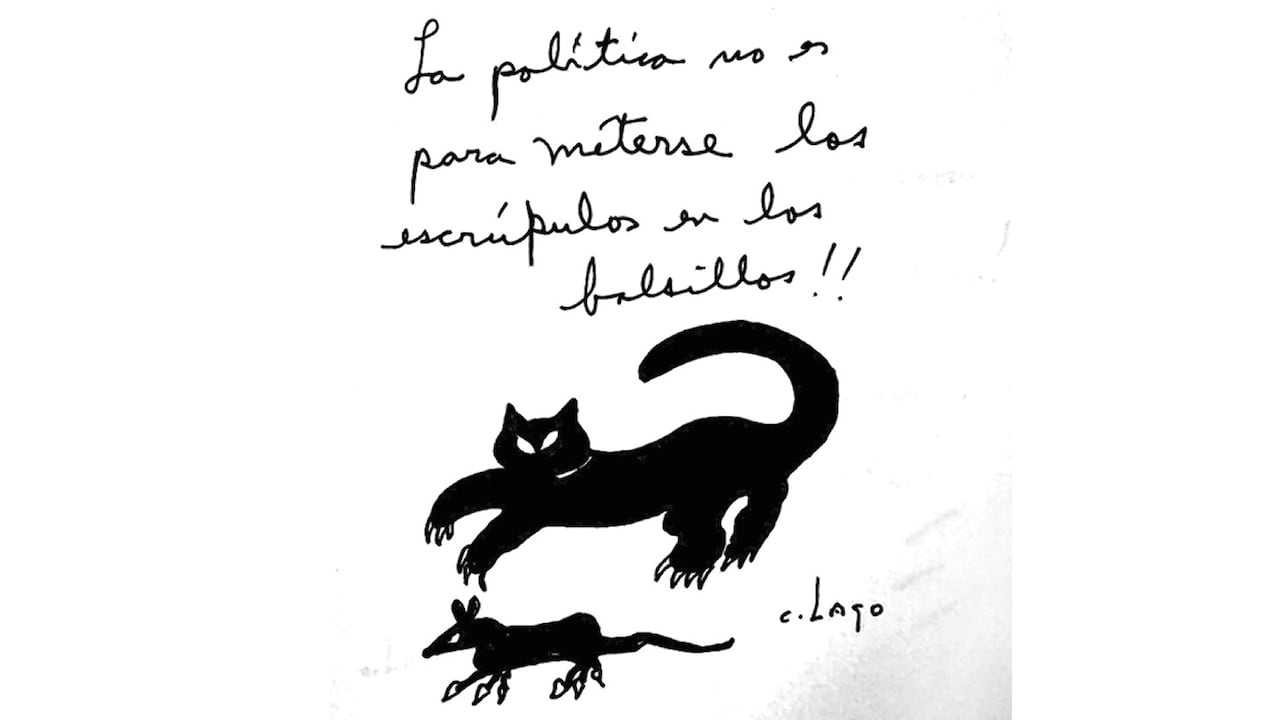 La política no es
para meterse los
escrúpulos en los
bolsillos!!
c. Lago